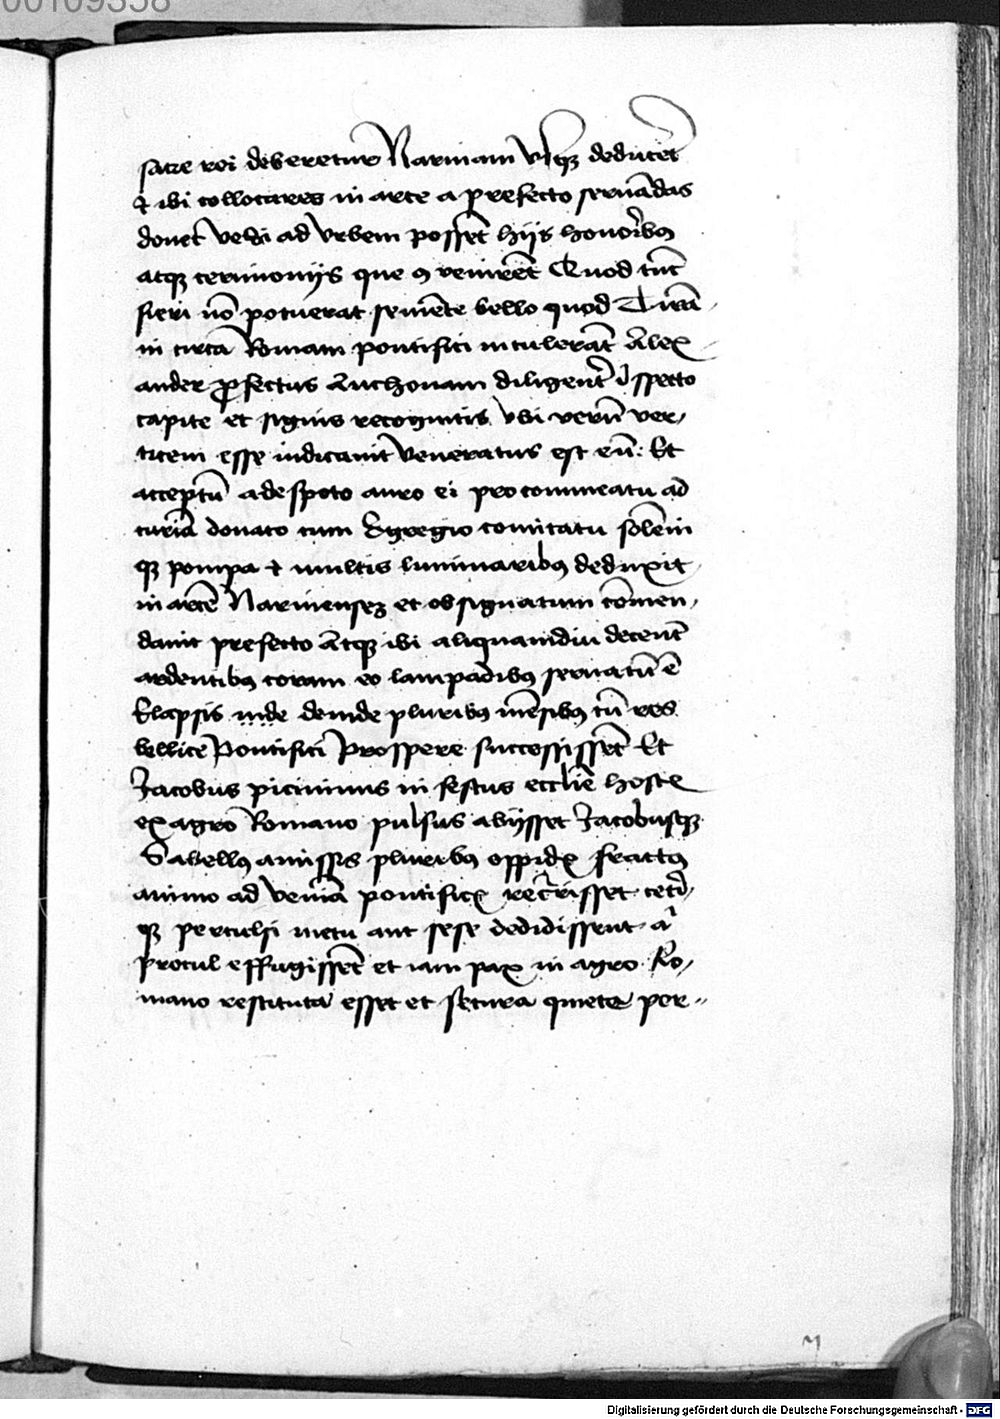 00109358
sacre rei deberetur Narniam vsq3 deducer̄t
et ibi collocares in arce a prefecto seruādas
donec vehi ad vrbem possēt hijs honorib9
atq3 cerimonijs que 9venirēt Quod tūc
fieri nō potuerat seuiēte bello quod Tirā
in circa Romam pontifici intulerāt Alex
ander profectus Anchonam diligenter īspecto
capite et signis recognitis vbi verū ver,
ticem esse iudicauit veneratus est eū: Et
acceptū a despoto auro ei pro commeatu ad
curiā donato cum Egregio comitatu solēni
q3 pompa et multis luminarib9 deduxit
in arcē Narniensez et obsignatum cōmen,
dauit prefecto Atq3 ibi aliquamdiu decent̄
ardentib9 coram eo lampadib9 seruatū ē
Elapsis inde deinde plurib9 mēsib9 cū res
bellice Pontifici Prospere successissēt Et
Jacobus picininus in festus ecclīe hoste
ex agro Romano pulsus abijsset Jacobusq3
Sabell9 amissis plurib9 oppid fract9
animo ad veniā pontific recurrisset ceti,
q3 perculsi metu aut sese dedidissent a
procul effugissēt et iam pax in agro Ro,
mano restituta esset et secura quiete per,,
Digitalisierung gefördert durch die Deutsche Forschungsgemeinschaft - DFG